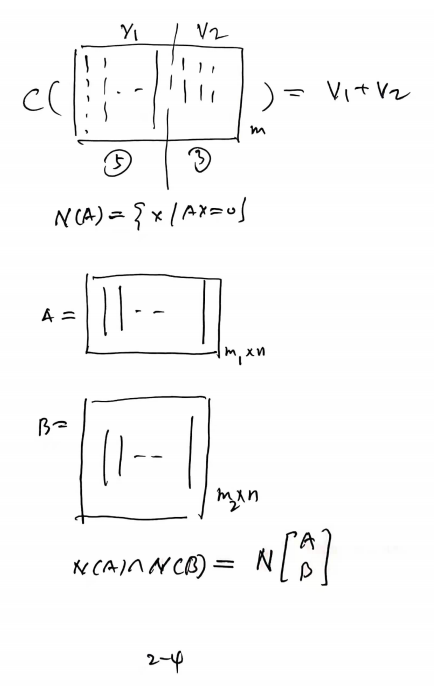 V1 | V2
C( [ ] ) = V1 + V2
m
5 3
N(A) = { x / Ax = 0 }
A = [ ] m1 x n
B = [ ] m2 x n
N(A) ∩ N(B) = N [ A
B ]
2-4